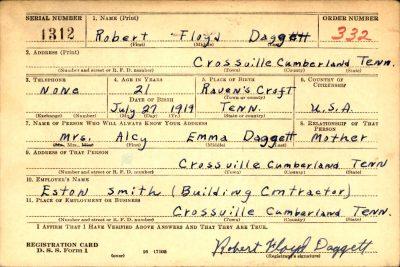 SERIAL NUMBER 1. NAME (Print) ORDER NUMBER
1312 Robert Floyd Daggett 332
(First) (Middle) (Last)
2. ADDRESS (Print)
Crossville Cumberland Tenn.
(Number and street or R. F. D. number) (Town) (County) (State)
3. TELEPHONE 4. AGE IN YEARS 5. PLACE OF BIRTH 6. COUNTRY OF CITIZENSHIP
None 21 Raven's Croft
DATE OF BIRTH (Town or county)
July 27 1919 Tenn. U.S.A.
(Exchange) (Number) (Mo.) (Day) (Yr.) (State or country)
7. NAME OF PERSON WHO WILL ALWAYS KNOW YOUR ADDRESS 8. RELATIONSHIP OF THAT PERSON
Mrs. Alcy Emma Daggett Mother
(First) (Middle) (Last)
9. ADDRESS OF THAT PERSON
Crossville Cumberland Tenn
(Number and street or R. F. D. number) (Town) (County) (State)
10. EMPLOYER'S NAME
Eston Smith (Building Contractor)
11. PLACE OF EMPLOYMENT OR BUSINESS
Crossville Cumberland Tenn.
(Number and street or R. F. D. number) (Town) (County) (State)
I AFFIRM THAT I HAVE VERIFIED ABOVE ANSWERS AND THAT THEY ARE TRUE.
REGISTRATION CARD
D. S. S. Form 1 (over) Robert Floyd Daggett
(Registrant's signature)